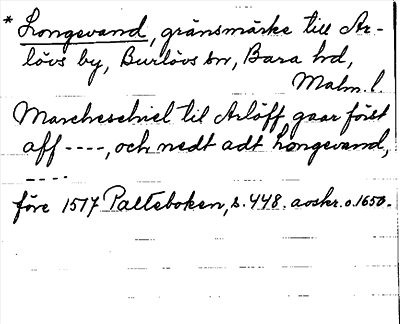 * Longevand, gränsmärke till Ar-
lövs by, Burlövs sn, Bara hd,
Malm. l.
Marcheschiel til Arlöff gaar först
aff ----, och nedt adt Longevand,
----
före 1517 Palteboken, s. 448. avskr. o. 1650.